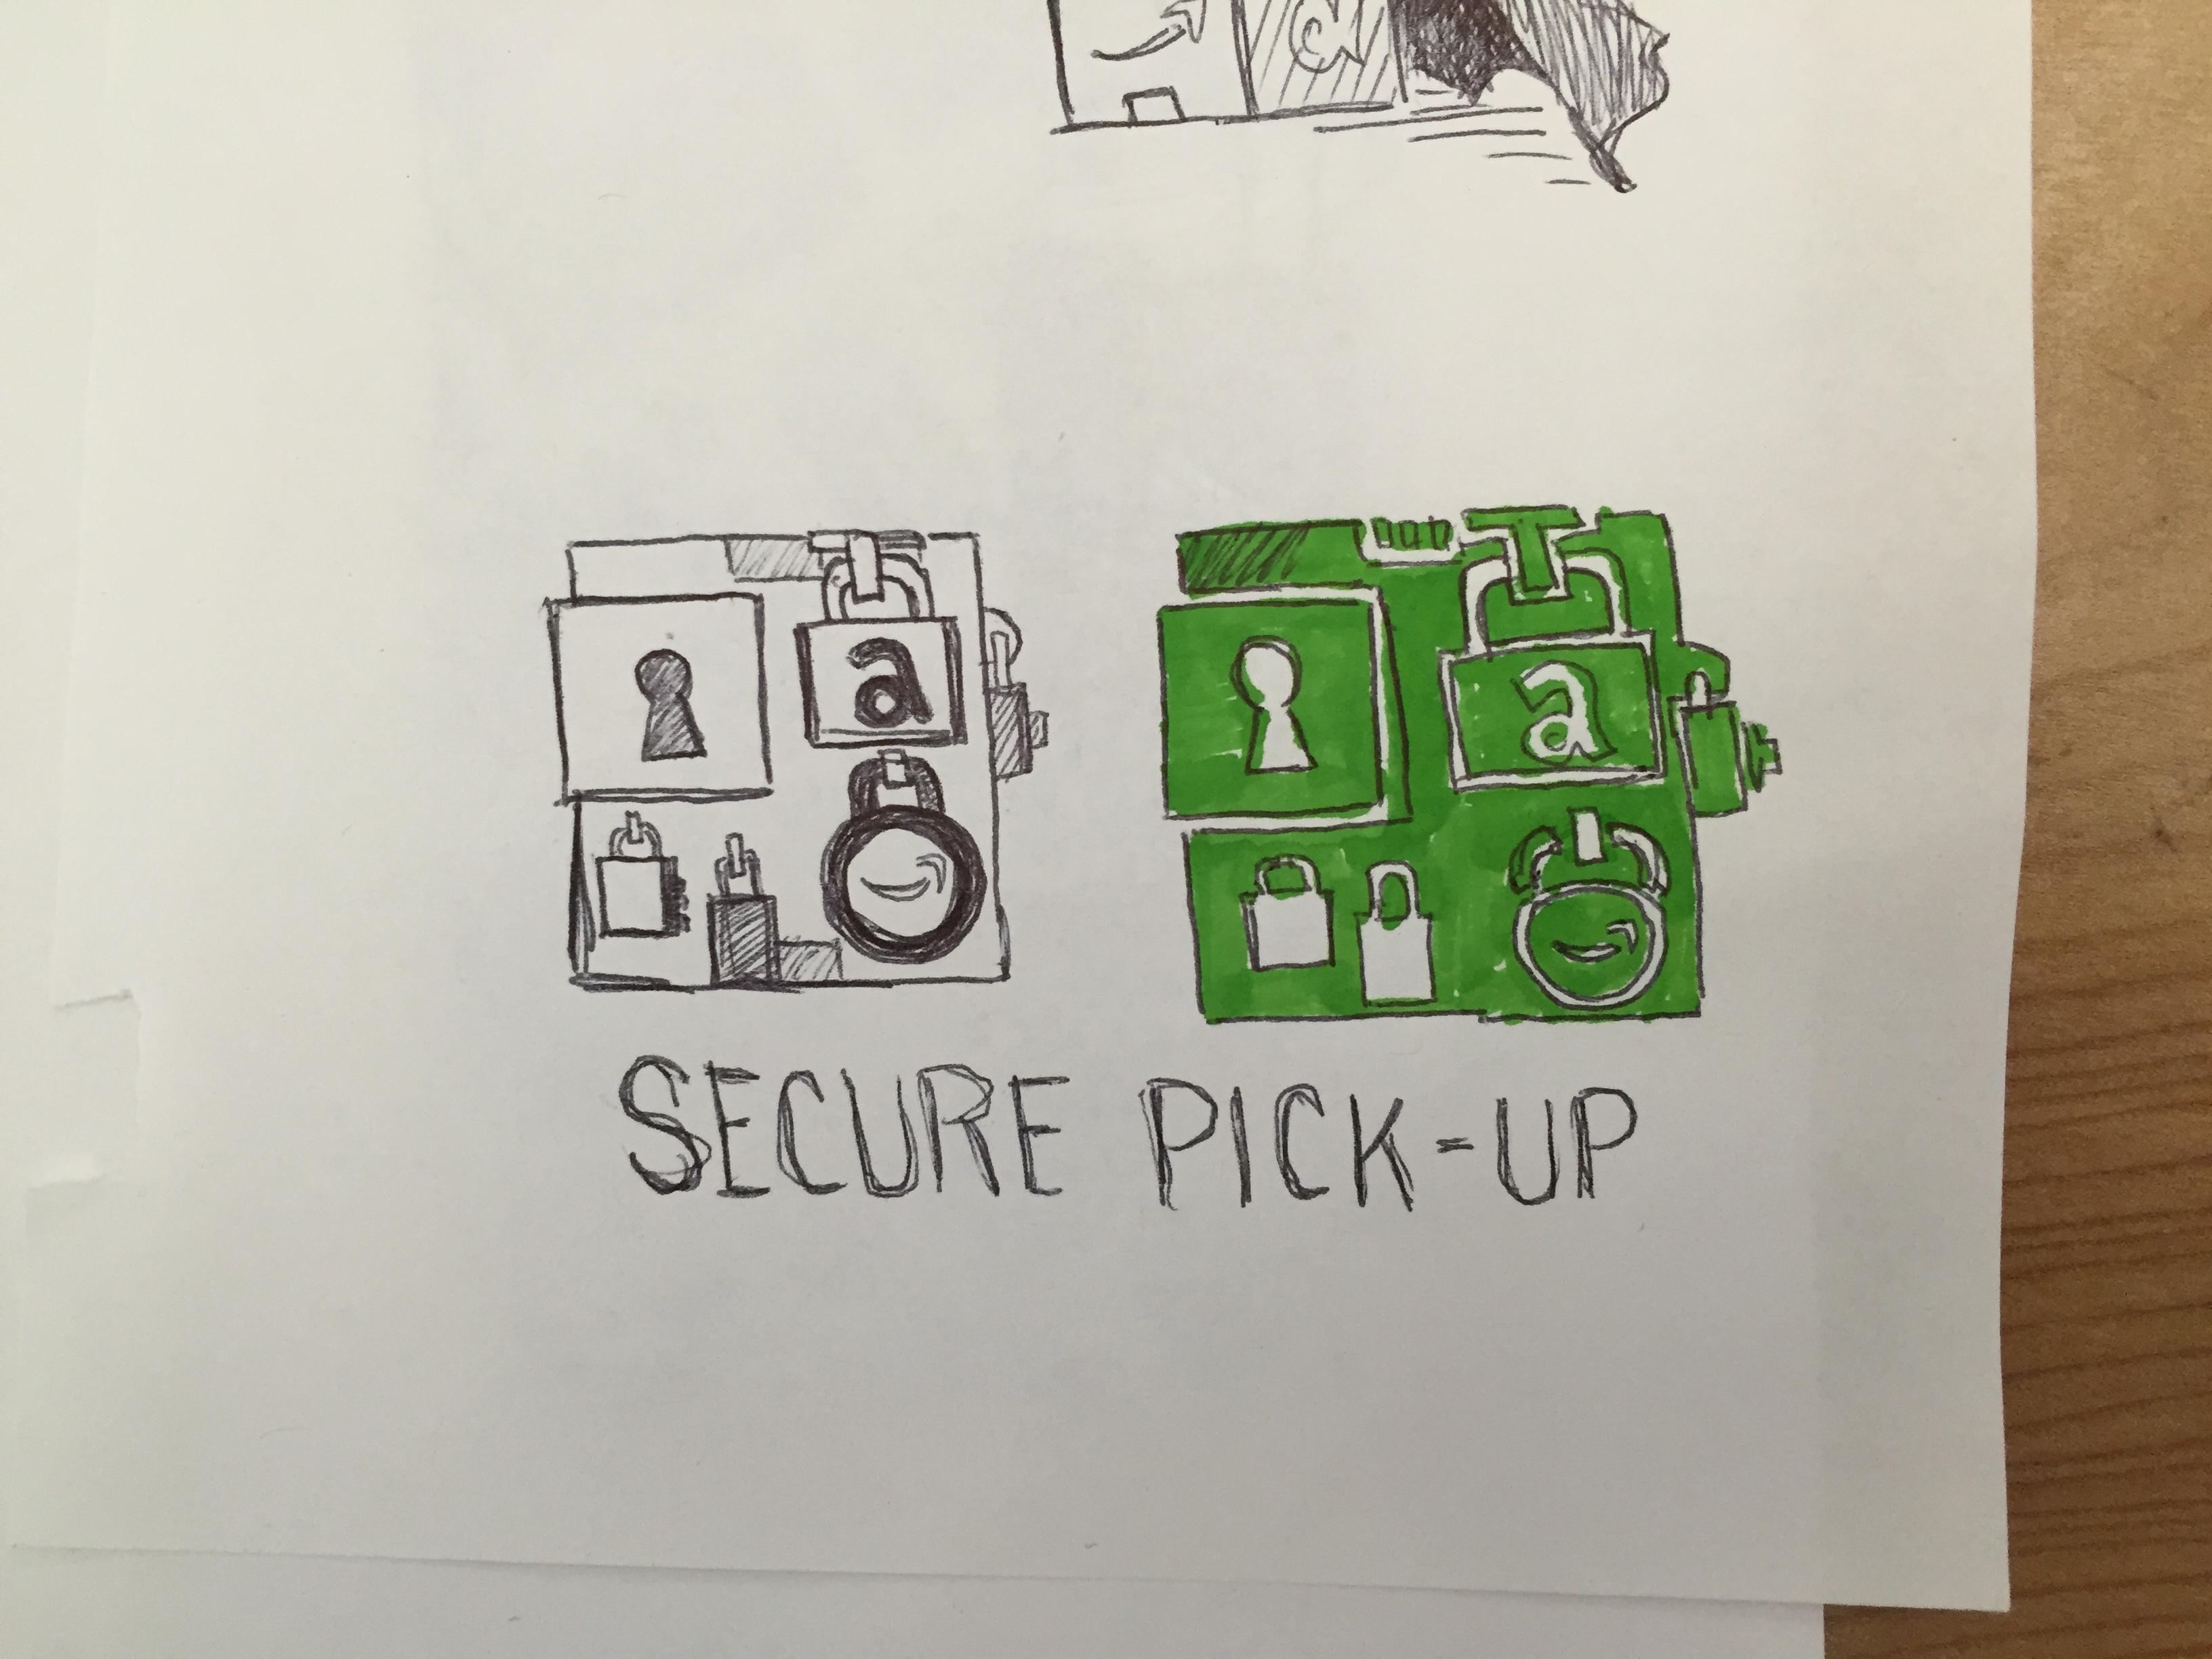 a
a a
SECURE PICK-UP